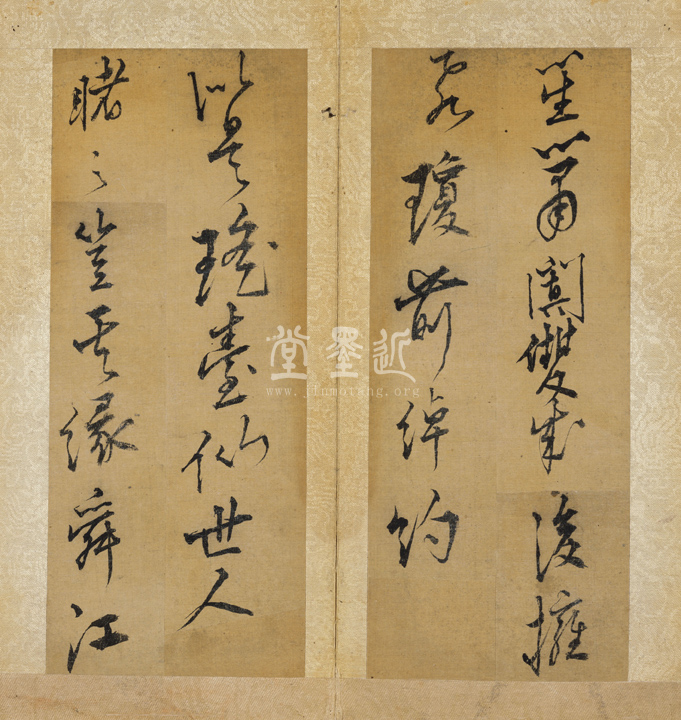 笙簫闐雙成後擁
飛瓊前綽約
似是瑤臺仙世人
睹之豈无緣舜江
近墨堂
www.jinmotang.org